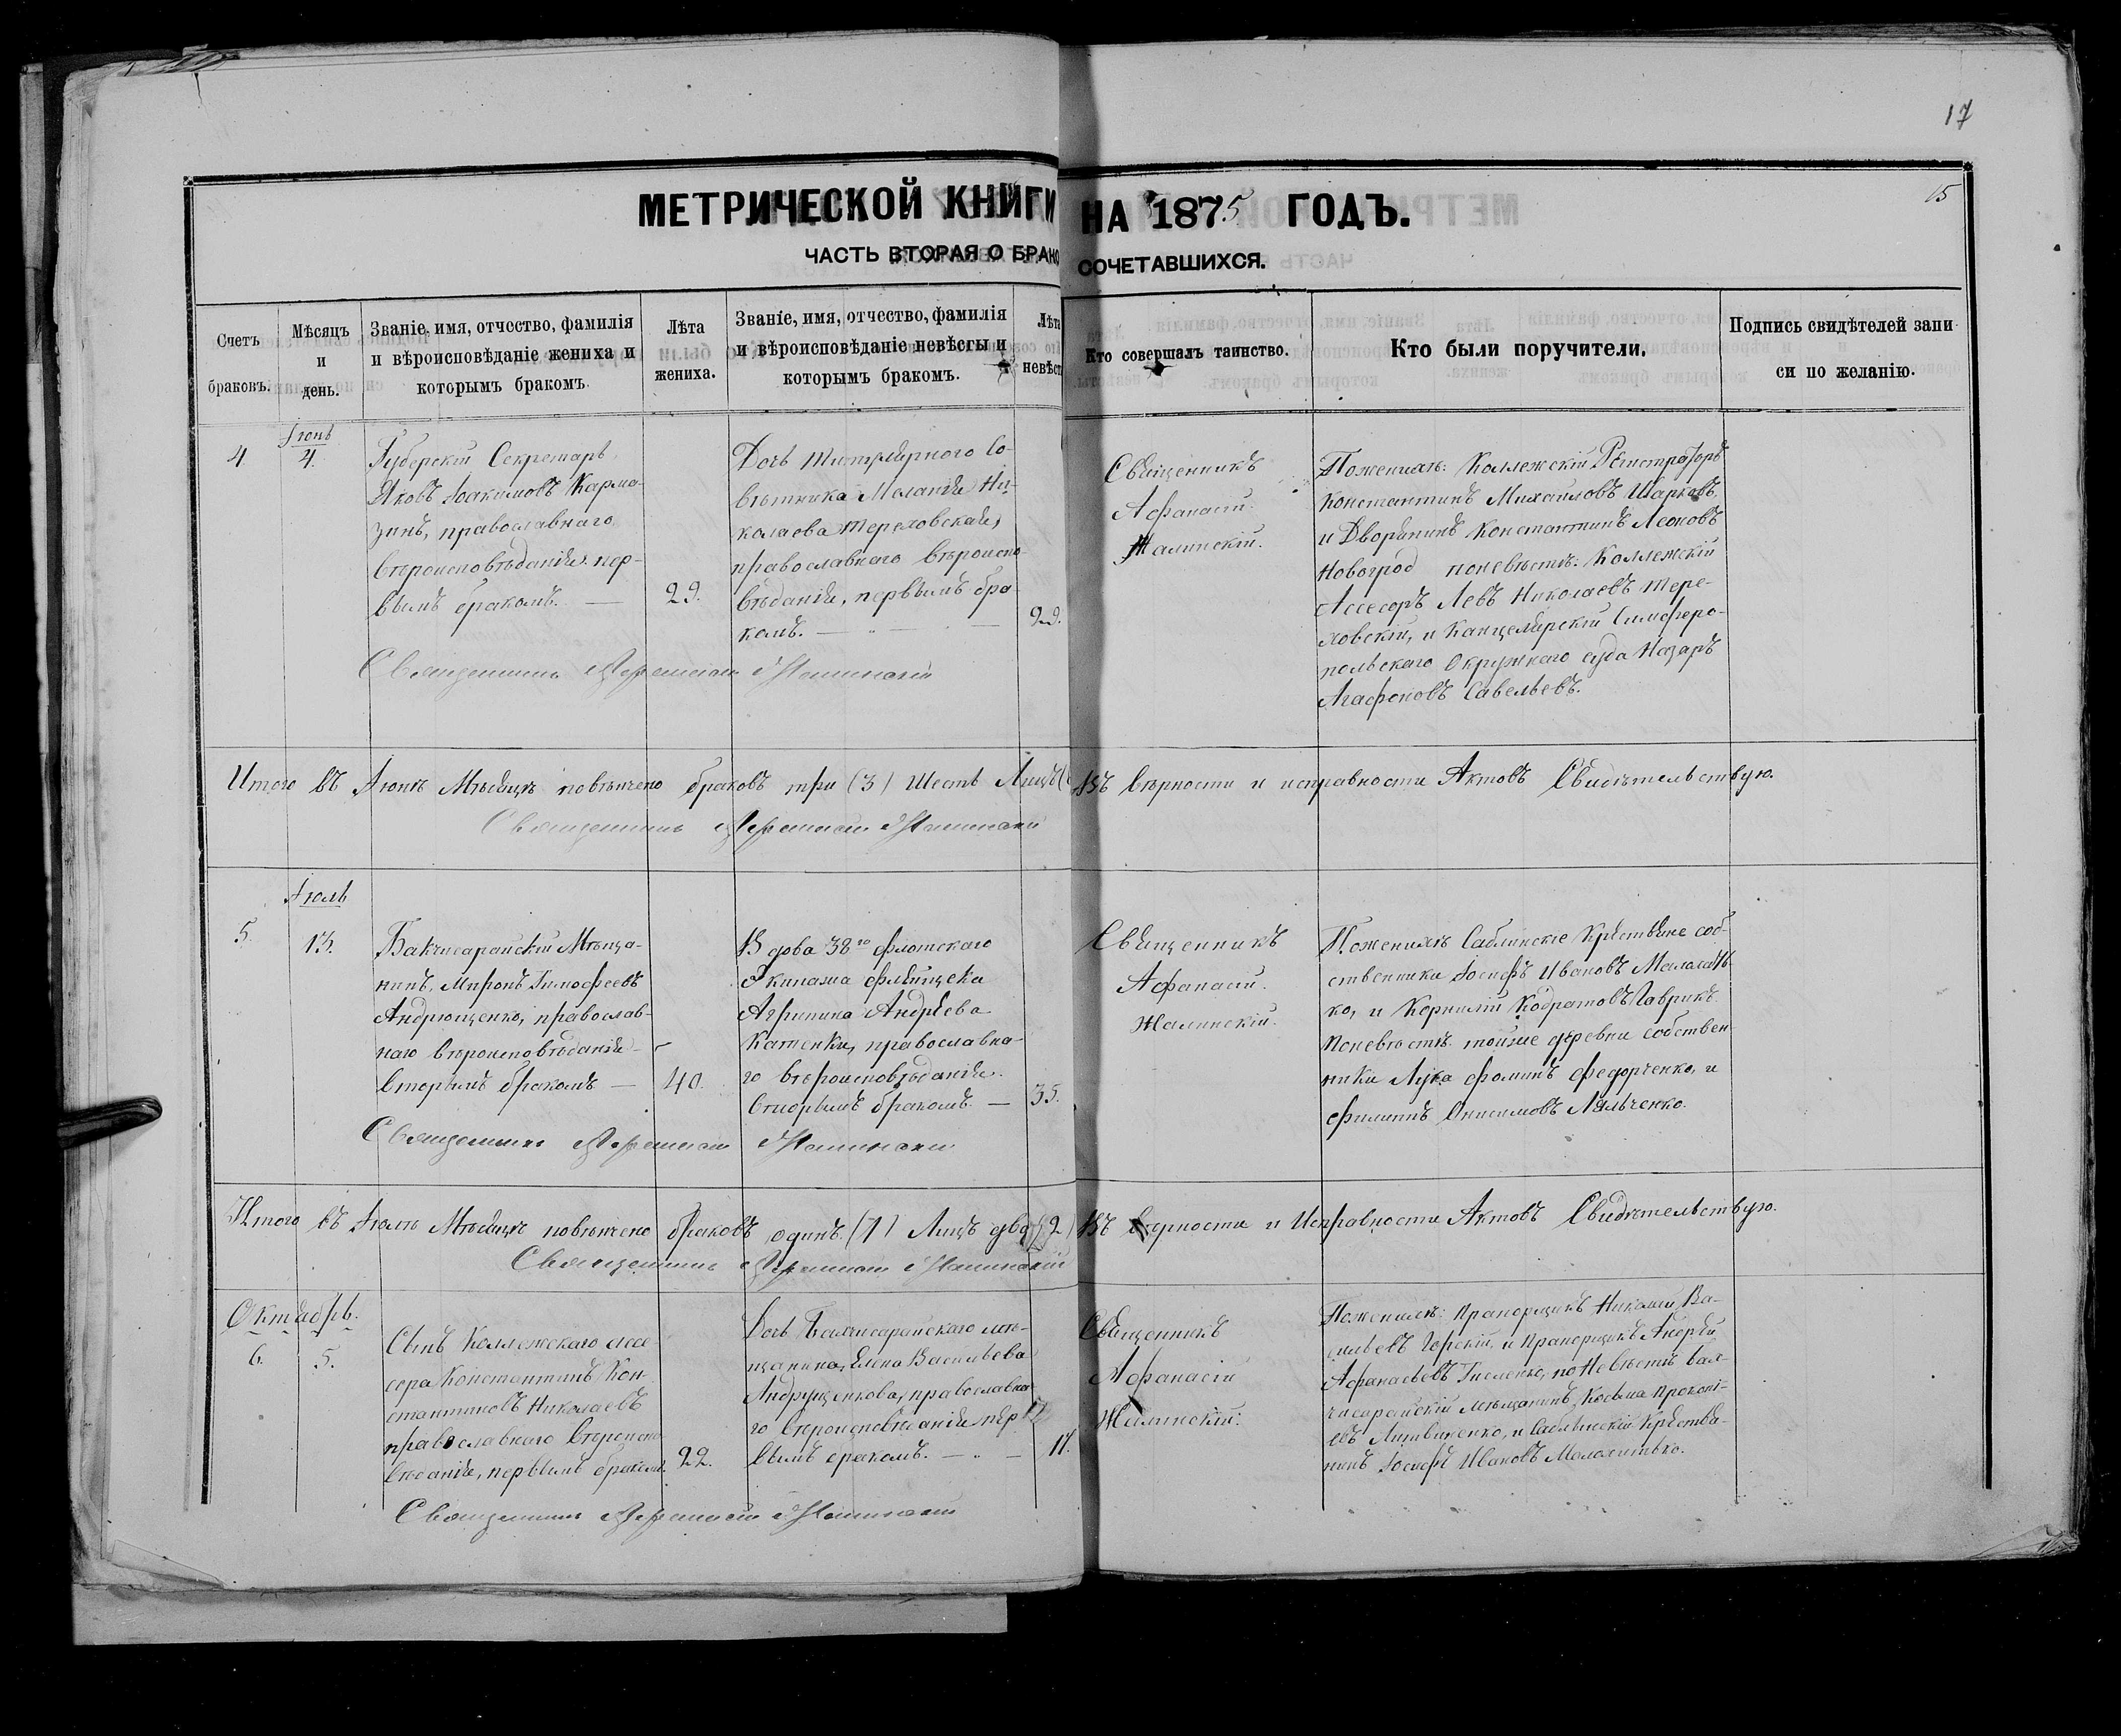 17
15
МЕТРИЧЕСКОЙ КНИГИ НА 1875 ГОДЪ.
ЧАСТЬ ВТОРАЯ О БРАКОСОЧЕТАВШИХСЯ.
Счетъ браковъ.
Мѣсяцъ и день.
Званіе, имя, отчество, фамилія
и вѣроисповѣданіе жениха и
которымъ бракомъ.
Лѣта
жениха.
Званіе, имя, отчество, фамилія
и вѣроисповѣданіе невѣсты и
которымъ бракомъ.
Лѣта
невѣст
Кто совершалъ таинство.
Кто были поручители.
Подпись свидѣтелей запи-
си по желанію.
4
Іюнь
4.
Губерскій Секретарь
Яковъ Іоакимовъ Карма-
зинъ, православнаго
вѣроисповѣданія. пер-
вымъ бракомъ.
29.
Дочь Титулярного Со-
вѣтника Меланія Ни-
колаева Тереховская,
православнаго вѣроиспо-
вѣданія, первымъ бра-
комъ.
22.
Священникъ
Афанасій
Жалинскій.
Поженихѣ: Коллежскій Регистраторъ
Константинъ Михаиловъ Шарковъ
и Дворянинъ Константинъ Леоновъ
Новогрод поневѣстѣ: Коллежскій
Ассесоръ Левъ Николаевъ Тере-
ховскій, и Канцелярскій Симферо-
польскаго Окружнаго суда Назаръ
Агафоновъ Савельевъ.
Священникъ Афанасій Жалинскій
Итого въ Іюнѣ Мѣсяцѣ повѣнчено браковъ три (3) Шесть Лицъ (
Въ вѣрности и исправности Актовъ Свидѣтельствую.
Священникъ Афанасій Жалинскій
5.
Іюль
13.
Бакчисарайскій Мѣща-
нинъ, Миронъ Тимофеевъ
Андрющенко, православ-
наго вѣроисповѣданія
вторымъ бракомъ
40.
Вдова 38го флотскаго
Экипажа
Агрипина Андрѣева
Катенки, православна-
го вѣроисповѣданія.
вторымъ бракомъ.
35.
Священникъ
Афанасій.
Жалинскій.
Поженихѣ Саблинскіе Крѣстьяне соб-
ственники Іосифъ Ивановъ
ко, и Корнилій Кодратовъ Гаврикъ
Поневѣстѣ. тойже деревни собствен-
ники Лука Фоминъ Федорченко, и
Филиппъ Онисимовъ Ляльченко.
Священникъ Афанасій Жалинскій
Итого въ Іюлѣ Мѣсяцѣ повѣнчено браковъ одинъ (1) Лицъ два (2)
Въ вѣрности и Исправности Актовъ Свидѣтельствую.
Священникъ Афанасій Жалинскій
Октябрь.
6.
5.
Сынъ Коллежскаго Ассе-
сора Константинъ Кон-
стантиновъ Николаевъ
православнаго вѣроиспо
вѣданія, первымъ бракомъ.
22.
Дочь Бакчисарайскаго мѣ-
щанина, Елена Васильева
Андрущенкова, православна-
го вѣроисповѣданія пер
вымъ бракомъ.
17.
Священникъ
Афанасій
Жалинскій:
Поженихѣ: Прапорщикъ Николай Ва-
сильевъ Горскій, и Прапорщикъ Андрѣй
Афанасьевъ Тисленко, по Невѣстѣ Бак-
чисарайскій мѣщанинъ, Косьма Прокопі-
евъ Литвиненко, и Саблинскій Крѣстья-
нинъ Іосифъ Ивановъ
Священникъ Афанасій Жалинскій